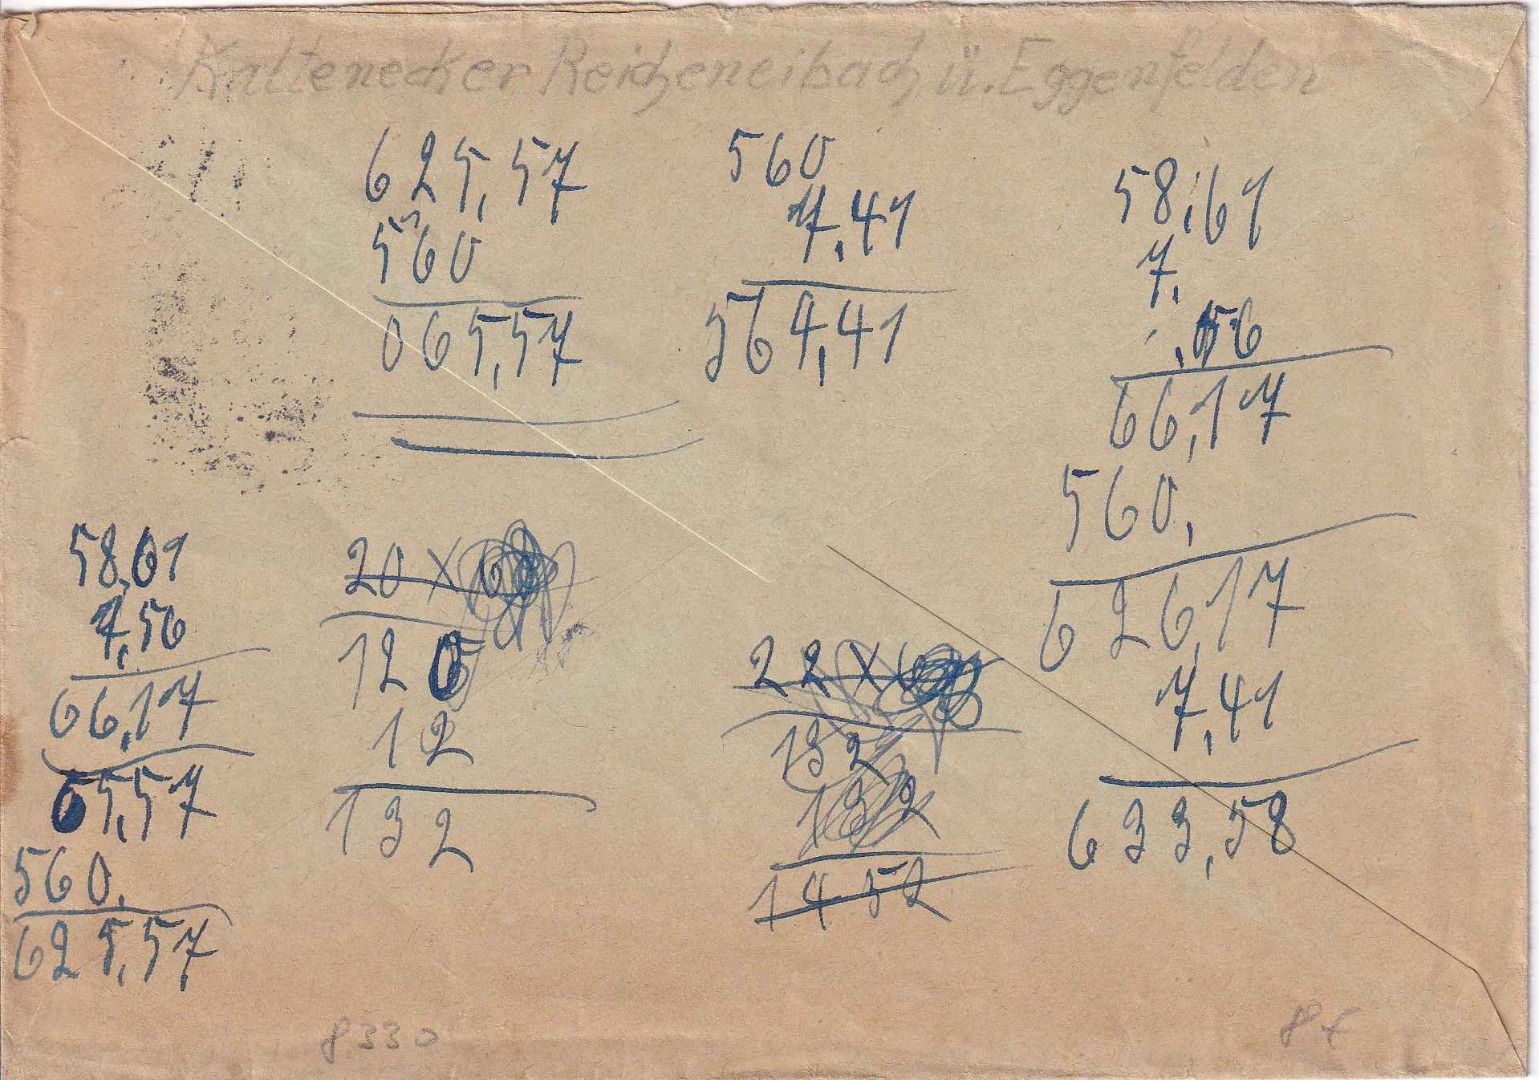 Kaltenecker Reicheneibach ü. Eggenfelden
625,57
560
065,57
560
7,41
564,41
58,61
7.
.56
66,17
560,
626,17
7,41
633,58
58,61
7,56
66,17
65,57
560.
625,57
20 X
120
12
132
22 X
132
132
1452
8330